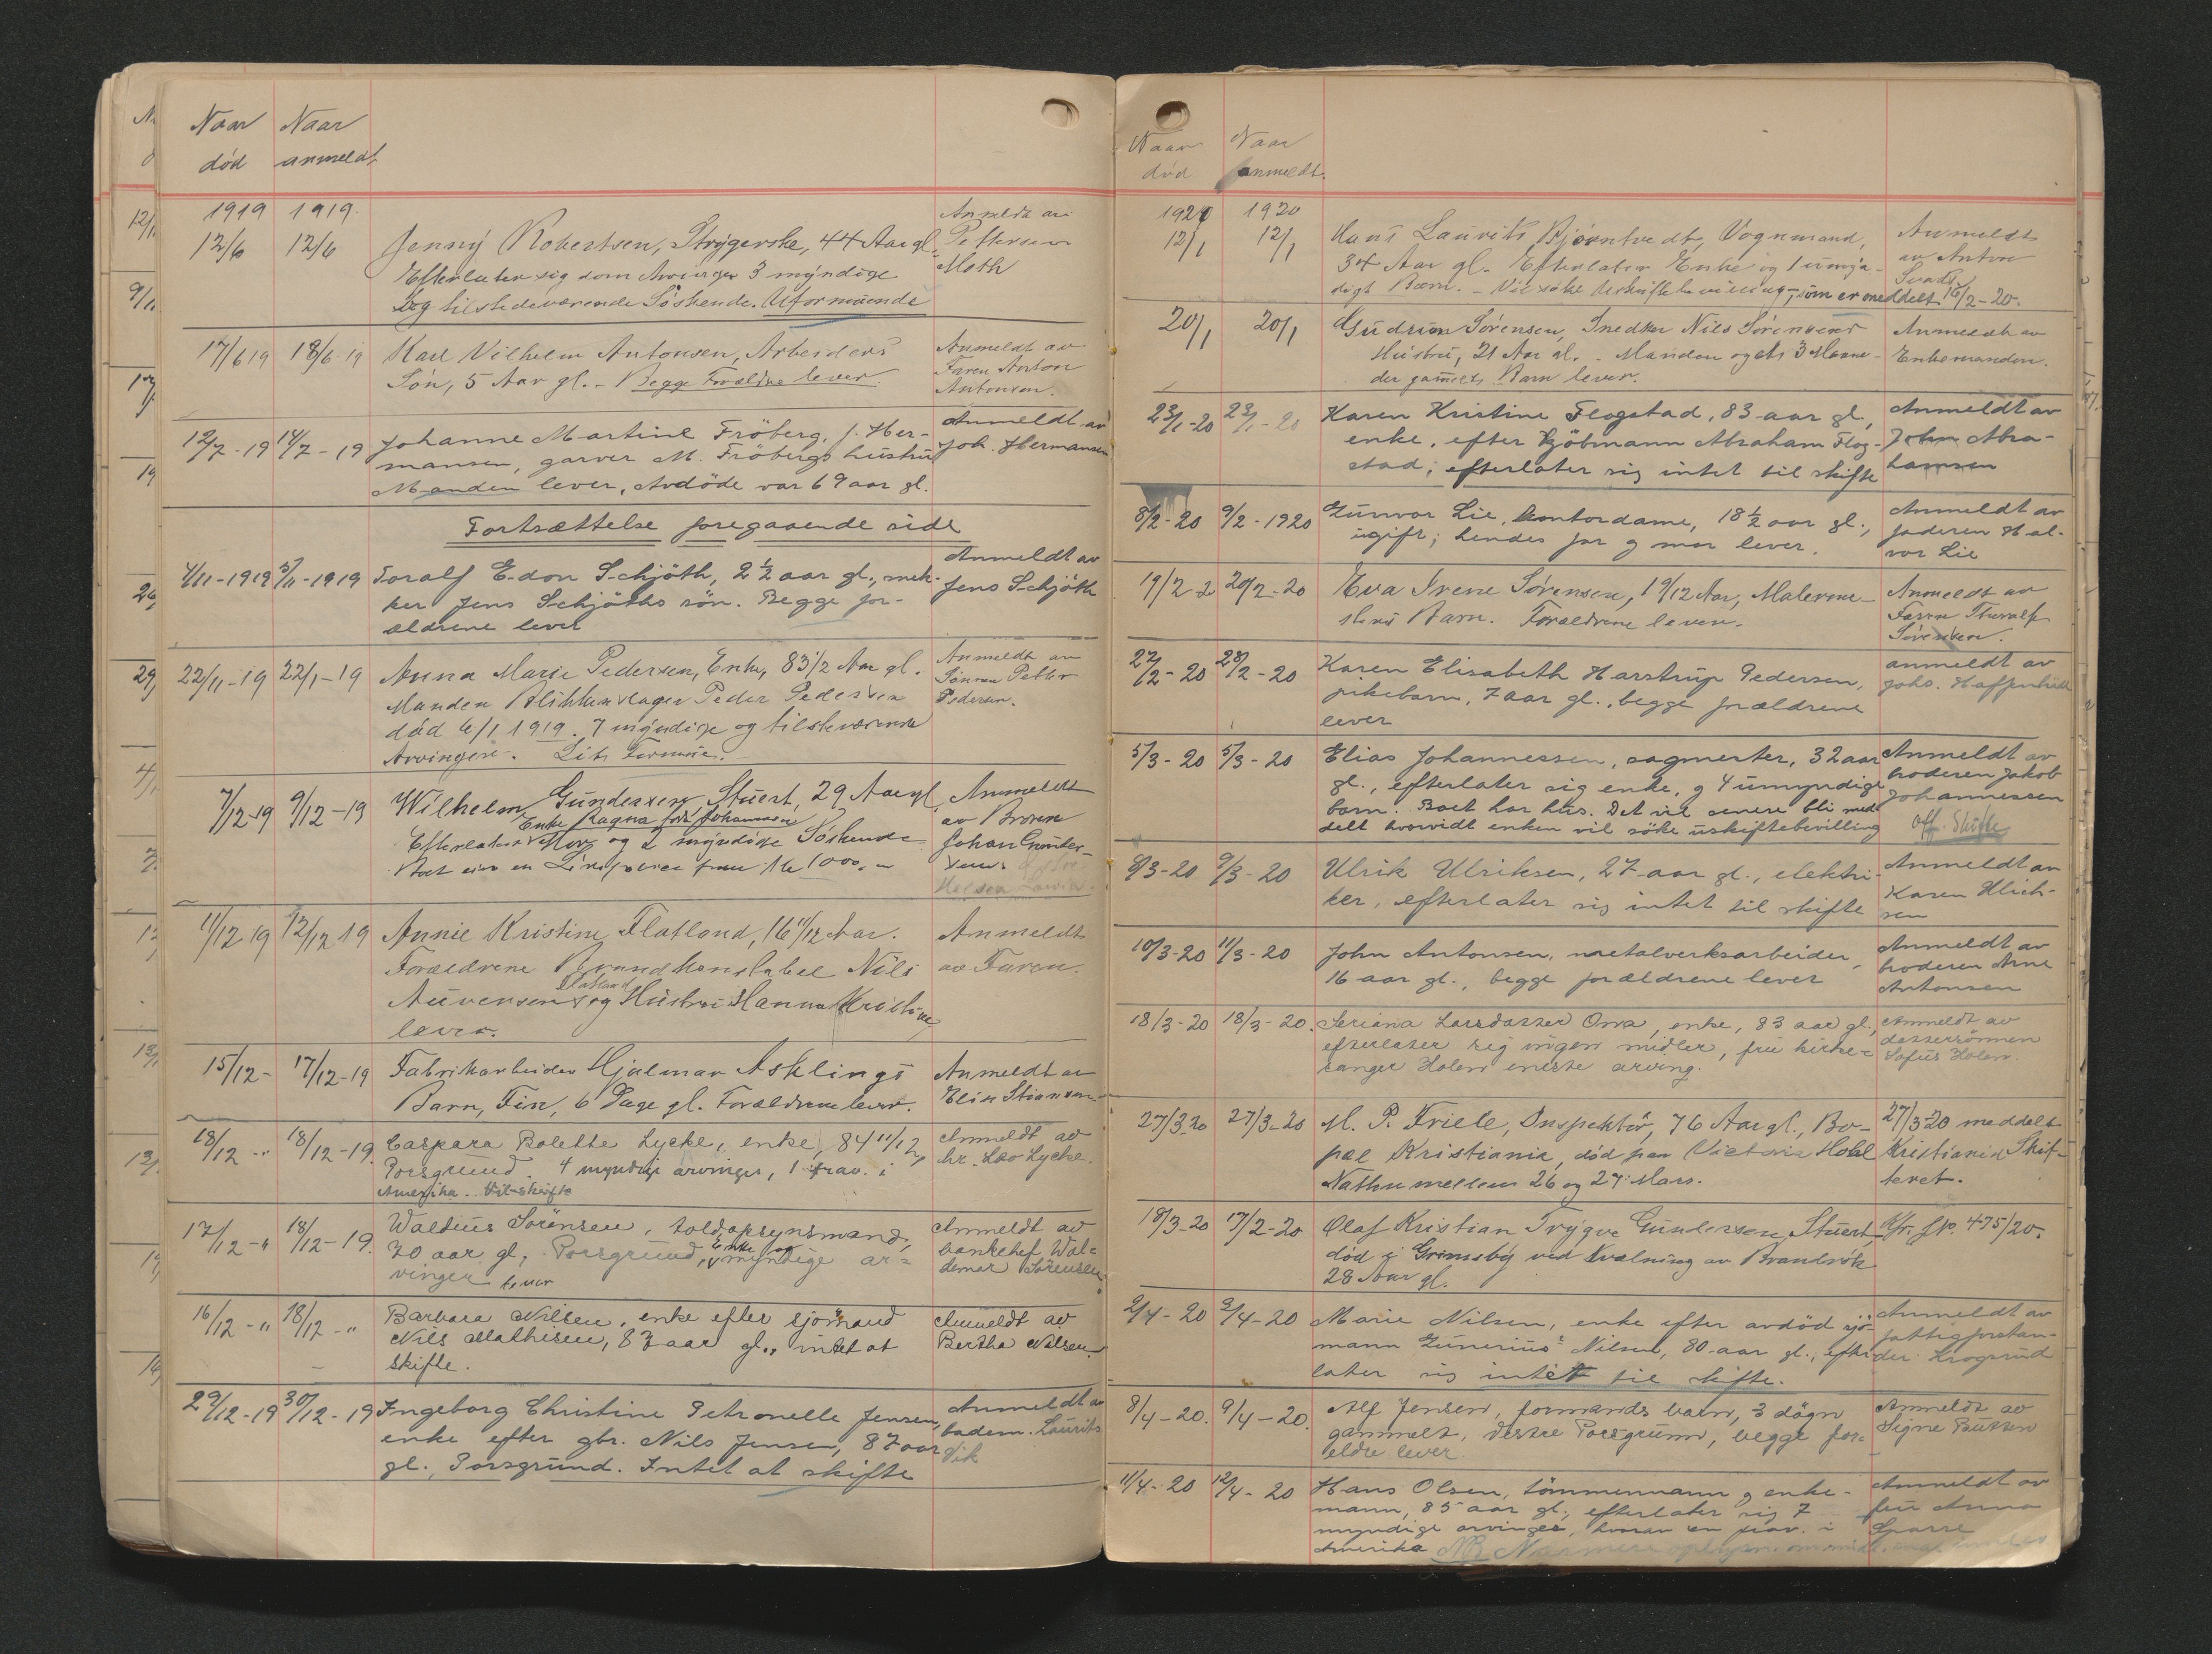 Naar Naar
død anmeldt
1919 1919.
12/6 12/6 Jenny Robertsen, Strygerske, 44 Aar gl. Anmeldt av
Efterlater sig som Arvinger 3 myndige Pettersen
og tilstedeværende Søskende. Uformuende Moth
17/6 19 18/6 19 Karl Vilhelm Antonsen, Arbeiders Anmeldt av
Søn, 5 Aar gl. - Begge Forældre lever. Faren Anton
Antonsen.
12/7-19 14/7-19 Johanne Martine Fröberg, f. Her- Anmeldt av
mansen, garver M. Fröbergs hustru Joh. Hermansen
Manden lever, Avdöde var 69 aar gl.
Fortsættelse foregaaende side
4/11-1919 5/11-1919 Toralf Edon Schjöth, 2½ aar gl., snek- Anmeldt av
ker Jens Schjöths sön. Begge for- Jens Schjöth
ældrene lever
22/11-19 22/1-19 Anna Marie Pedersen, Enke, 83½ Aar gl. Anmeldt av
Manden Blikkenslager Peder Pedersen Sønnen Petter
død 6/1 1919. 7 myndige og tilstkværende Pedersen.
Arvingere. Lit Formue.
7/12-19 9/12-19 Wilhelm Gundersen, Stuert, 29 Aar gl. Anmeldt
Enke Ragna født Johannesen av Broren
Efterlater Mor og 2 myndige Søskende Johan Gunder-
Boet eier en Livspolice paa Kr 1000.- sen.
11/12 19 12/12 19 Annie Kristine Flatland, 16 11/12 Aar. Anmeldt
Forældrene Brandkonstabel Nils av Faren.
Flatland
Auvensen og Hustru Hanna Kristine
lever.
15/12- 17/12-19 Fabrikarbeider Hjalmar Asklings Anmeldt av
Barn, Finn, 6 Dage gl. Forældrene lever. Elise Stiansen
18/12 -" 18/12-19. Caspara Bolette Lycke, enke, 84 11/12, Anmeldt av
Porsgrund. 4 myndige arvinger, 1 frav. i hr. Leo Lycke.
Amerika. Vil skifte
17/12-" 18/12-19. Waldius Sørensen, toldopsynsmand, Anmeldt av
70 aar gl., Porsgrund, Enke og myndige ar= bankchef Wal=
vinger lever demar Sørensen
16/12-" 18/12-" Barbara Nilsen, enke efter sjømand Anmeldt av
Nils Mathisen, 87 aar gl., intet at Bertha Nilsen.
skifte.
29/12-19 30/12-19 Ingeborg Christine Petronelle Jensen, Anmeldt av
enke efter gbr. Nils Jensen, 87 aar badem. Laurits
gl., Porsgrund. Intet at skifte Vik
Naar Naar
død anmeldt.
1920 1920
12/1 12/1 Hans Laurits Bjørntvedt, Vognmand, Anmeldt
34 Aar gl. Efterlater Enke og 1 umyn- av Anton
digt Barn. - Vil søke Uskiftebevilling, som er meddelt 16/2-20.
20/1 20/1 Gudrun Sørensen, Snedker Nils Sørensens Anmeldt av
Hustru, 21 Aar gl. - Manden og et 3 Maane- Enkemanden.
der gammelt Barn lever.
23/1-20 23/1-20 Karen Kristine Flogstad, 83 aar gl., Anmeldt av
enke, efter kjöbmann Abraham Flog- John Abra-
stad; efterlater sig intet til skifte hamsen
8/2-20 9/2-1920 Gunvor Lie, kontordame, 18½ aar gl., Anmeldt av
ugift; hendes far og mor lever. faderen Hal-
vor Lie
19/2-2 20/2-20 Eva Irene Sørensen, 1 9/12 Aar, Malerme- Anmeldt av
sters Barn. Forældrene lever. Faren Thoralf
Sørensen.
22/2-20 23/2-20 Karen Elisabeth Harstrup Pedersen, anmeldt av
pikebarn, 7 aar gl., begge forældrene Johs.
lever
5/3-20 5/3-20 Elias Johannessen, sagmester, 32 aar Anmeldt av
gl., efterlater sig enke, og 4 umyndige broderen Jakob
barn. Boet har hus. Det vil senere bli med Johannessen
delt hvorvidt enken vil söke uskiftebevilling Off. Skifte
8/3-20 9/3-20 Ulrik Ulriksen, 27 aar gl., elektri- Anmeldt av
ker, efterlater sig intet til skifte Karen Ulrik-
sen
10/3-20 11/3-20 John Antonsen, metalverksarbeider, Anmeldt av
16 aar gl., begge forældrene lever broderen Arne
Antonsen
18/3-20 18/3-20. Seriana Larsdatter Ona, enke, 83 aar gl., Anmeldt av
efterlater sig ingen midler, fru kirke= dattersønnen
sanger Holen eneste arving. Sofus Holen.
27/3-20 27/3-20 M. P. Friele, Inspektør, 76 Aar gl., Bo- 27/3-20 meddelt
pæl Kristiania, død paa Victoria Hotel Kristiania Skif-
Natten mellem 26 og 27. Mars. teret.
18/3-20 17/2-20 Olaf Kristian Trygve Gundersen, Stuert Kfr. sk. 475/20.
død i Grimsby ved kvælning av Brandrøk
28 Aar gl.
2/4-20 3/4-20 Marie Nilsen, enke efter avdöd sjö- Anmeldt av
mann Gunerius Nilsen, 80 aar gl., efter fattigforstan-
later sig intet til skifte. der Krogsrud
8/4-20. 9/4-20. Alf Jensen, formands barn, 3 døgn Anmeldt av
gammelt, Vestre Porsgrunn, begge for= Signe Butten
eldre lever.
11/4-20 12/4-20 Hans Olsen, tömmermann og enke- Anmeldt av
mann, 85 aar gl., efterlater sig 7 fru Anna
myndige arvinger, hvorav en frav. i Sparre
Amerika NB Nærmere oplysn. om